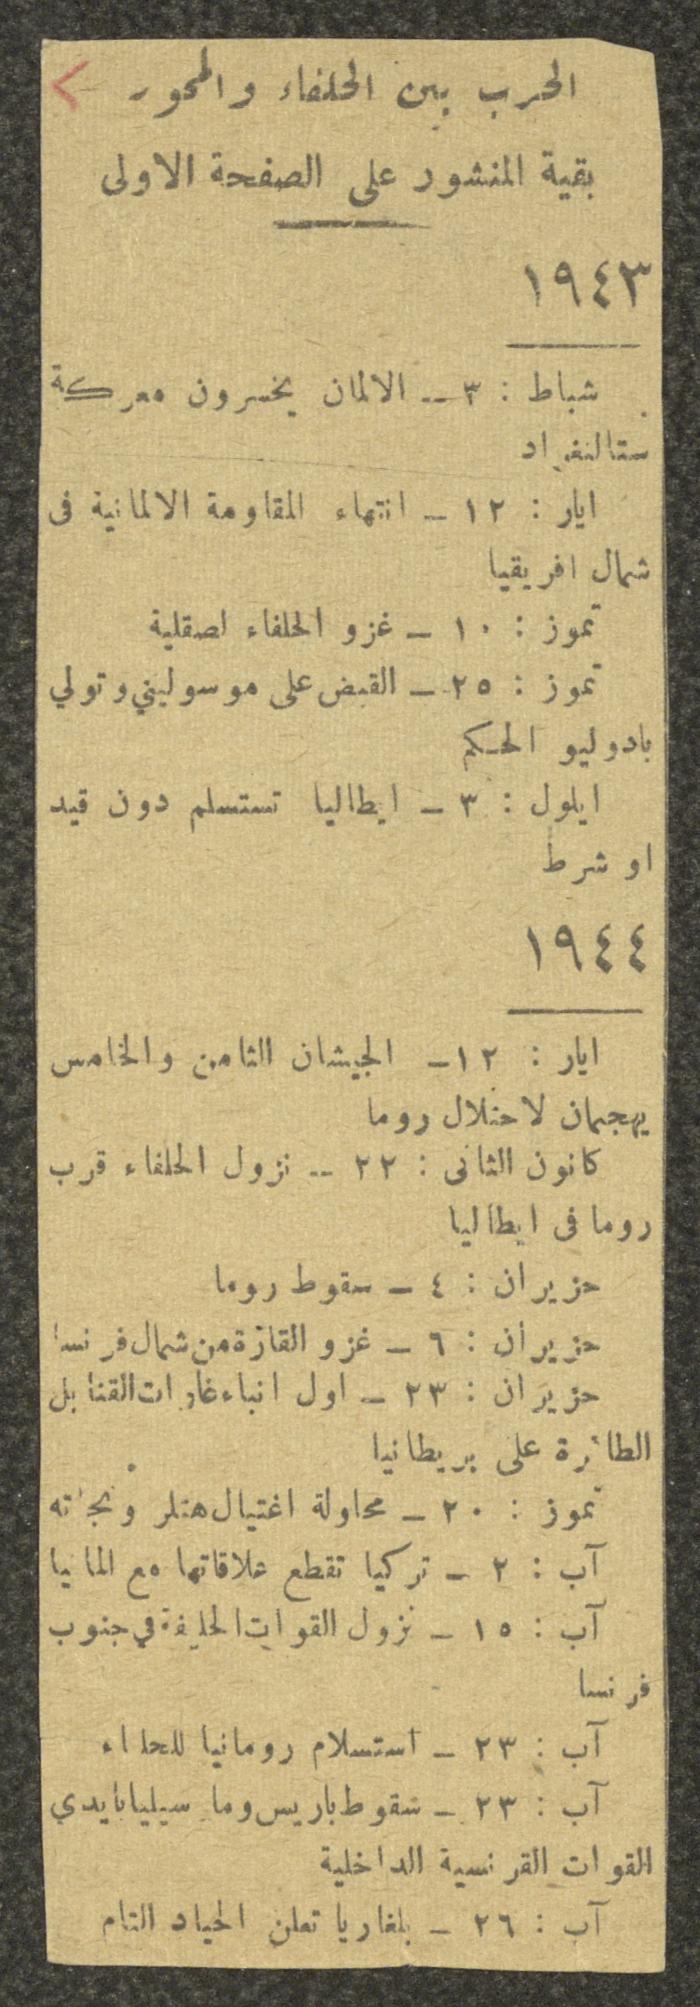 الحرب بين الحلفاء والمحور
بقية المنشور على الصفحة الاولى
١٩٤٣
شباط : ٣ ــ الالمان يخسرون معركة
ستالنغراد
ايار : ١٢ ــ انتهاء المقاومة الالمانية فى
شمال افريقيا
تموز : ١٠ ــ غزو الحلفاء لصقلية
تموز : ٢٥ ــ القبض على موسوليني وتولي
بادوليو الحكم
ايلول : ٣ ــ ايطاليا تستسلم دون قيد
او شرط
١٩٤٤
ايار : ١٢ ــ الجيشان الثامن والخامس
يهجمان لاحتلال روما
كانون الثانى : ٢٢ ــ نزول الحلفاء قرب
روما فى ايطاليا
حزيران : ٤ ــ سقوط روما
حزيران : ٦ ــ غزو القارة من شمال فرنسا
حزيران : ٢٣ ــ اول انباء غارات القنابل
الطائرة على بريطانيا
تموز : ٢٠ ــ محاولة اغتيال هتلر ونجاته
آب : ٢ ــ تركيا تقطع علاقاتها مع المانيا
آب : ١٥ ــ نزول القوات الحليفة في جنوب
فرنسا
آب : ٢٣ ــ استسلام رومانيا للحلفاء
آب : ٢٣ ــ سقوط باريس ومارسيليا بايدي
القوات الفرنسية الداخلية
آب : ٢٦ ــ بلغاريا تعلن الحياد التام